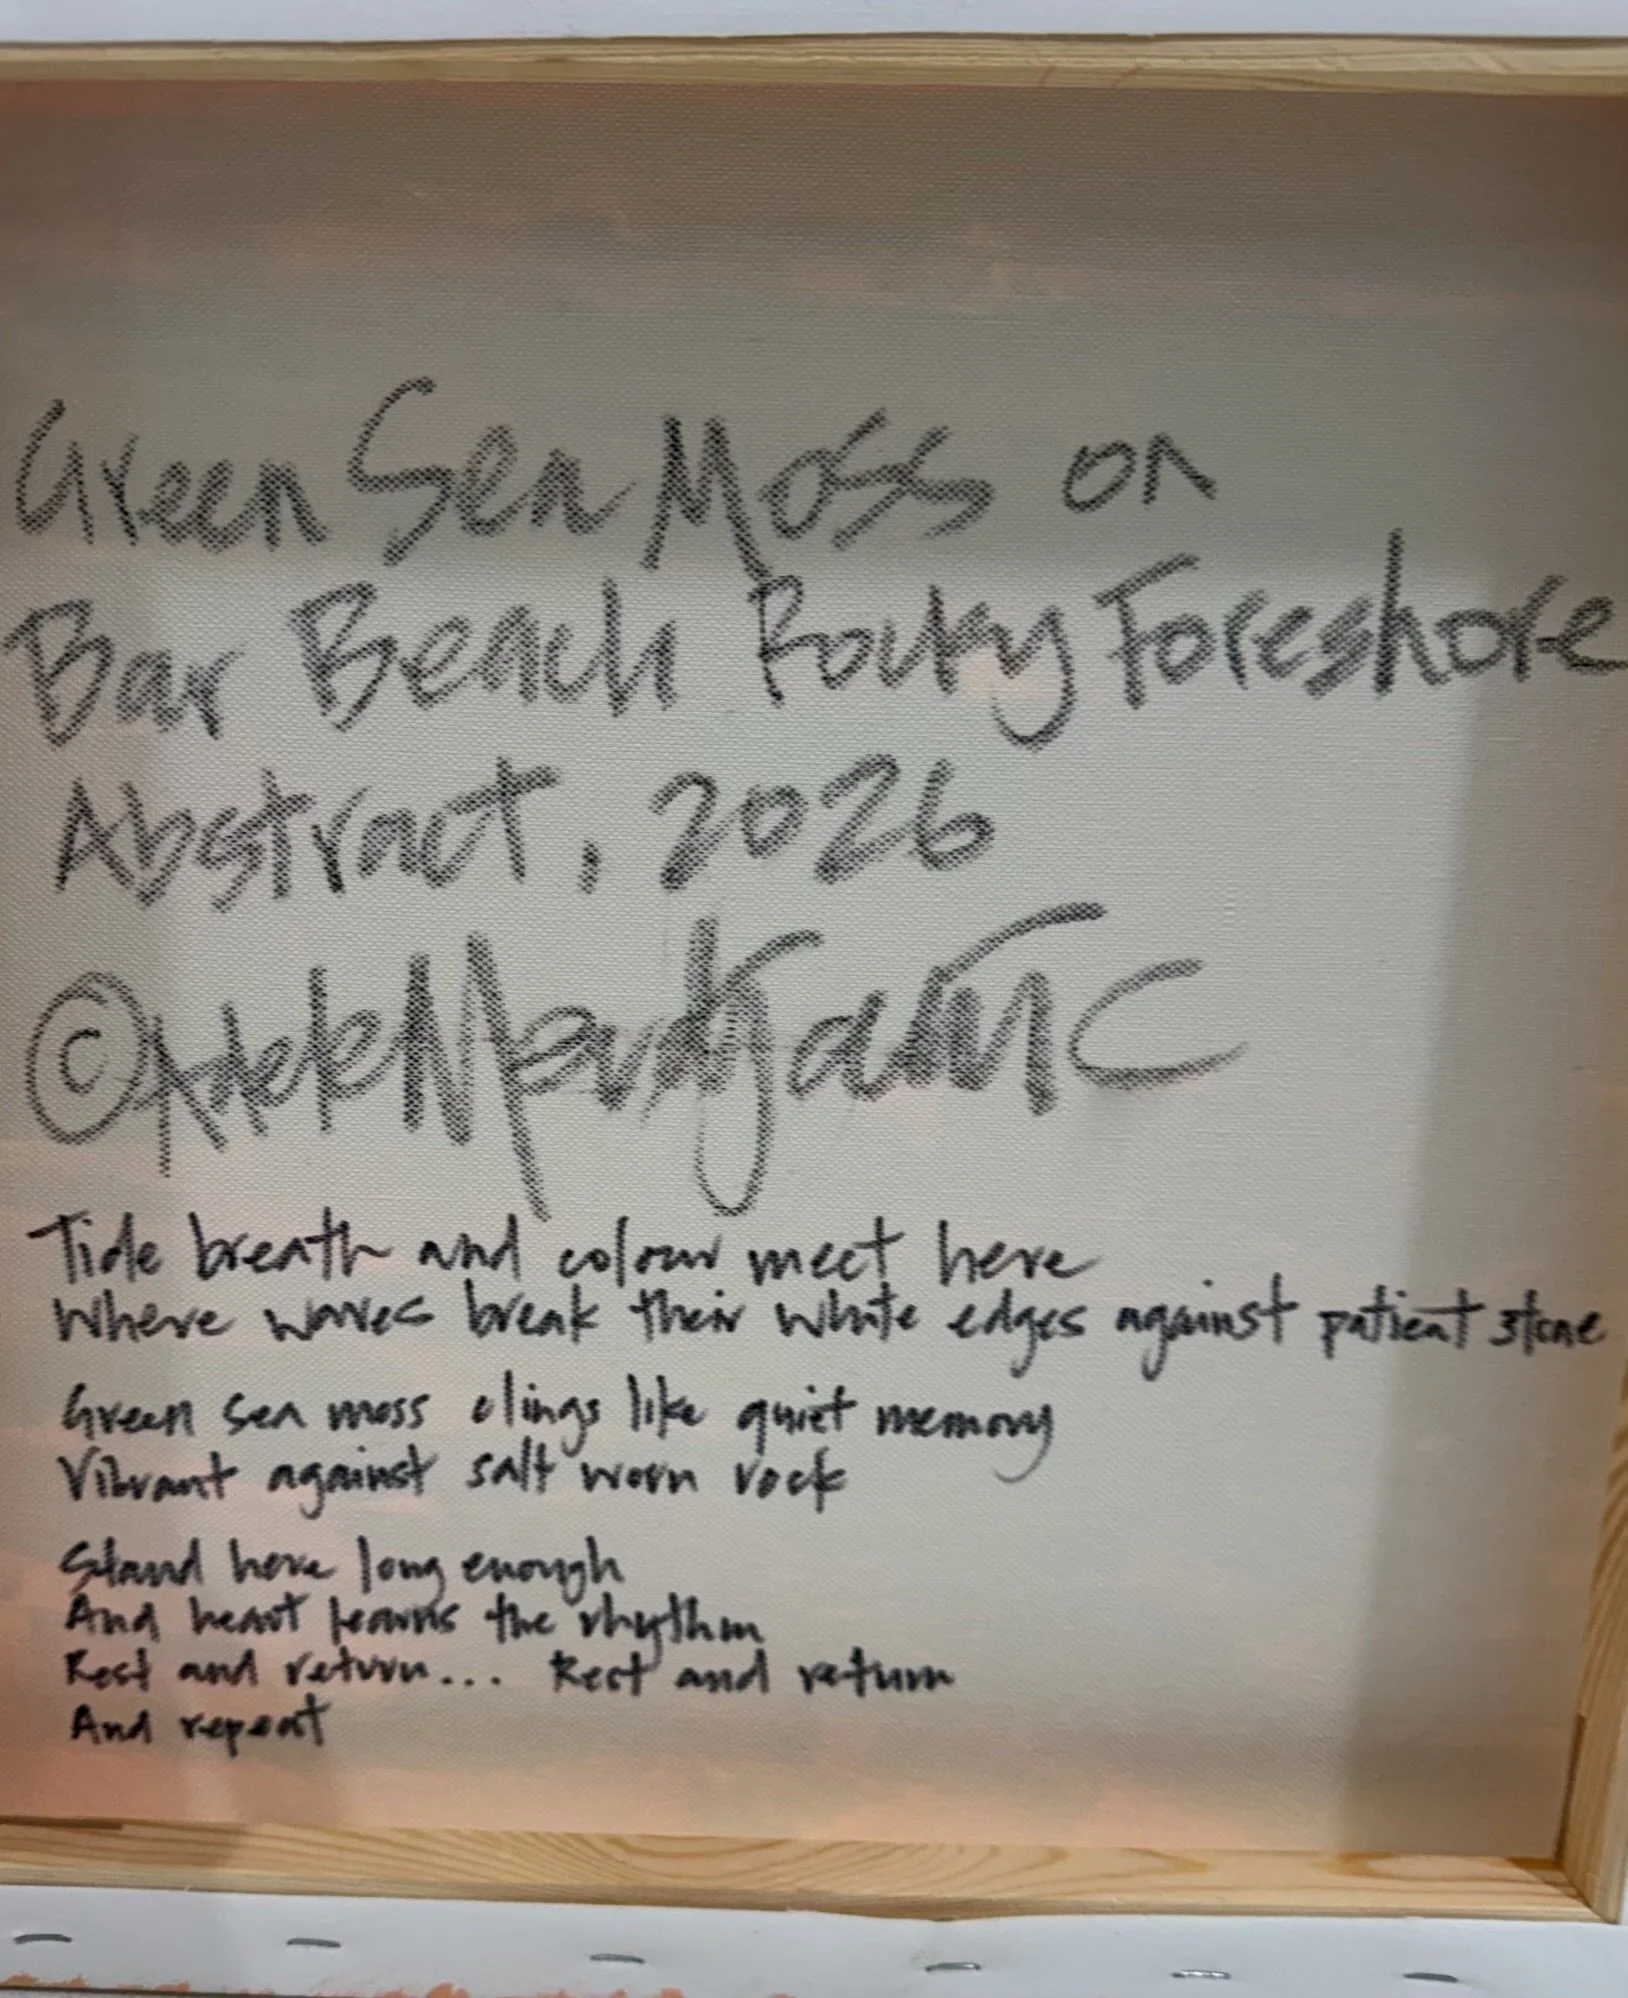 Green Sea Moss on
Bar Beach Rocky Foreshore
Abstract, 2026
© Adele
Tide breath and colour meet here
Where waves break their white edges against patient stone
Green sea moss clings like quiet memory
Vibrant against salt worn rock
Stand here long enough
And heart learns the rhythm
Rest and return... Rest and return
And repeat